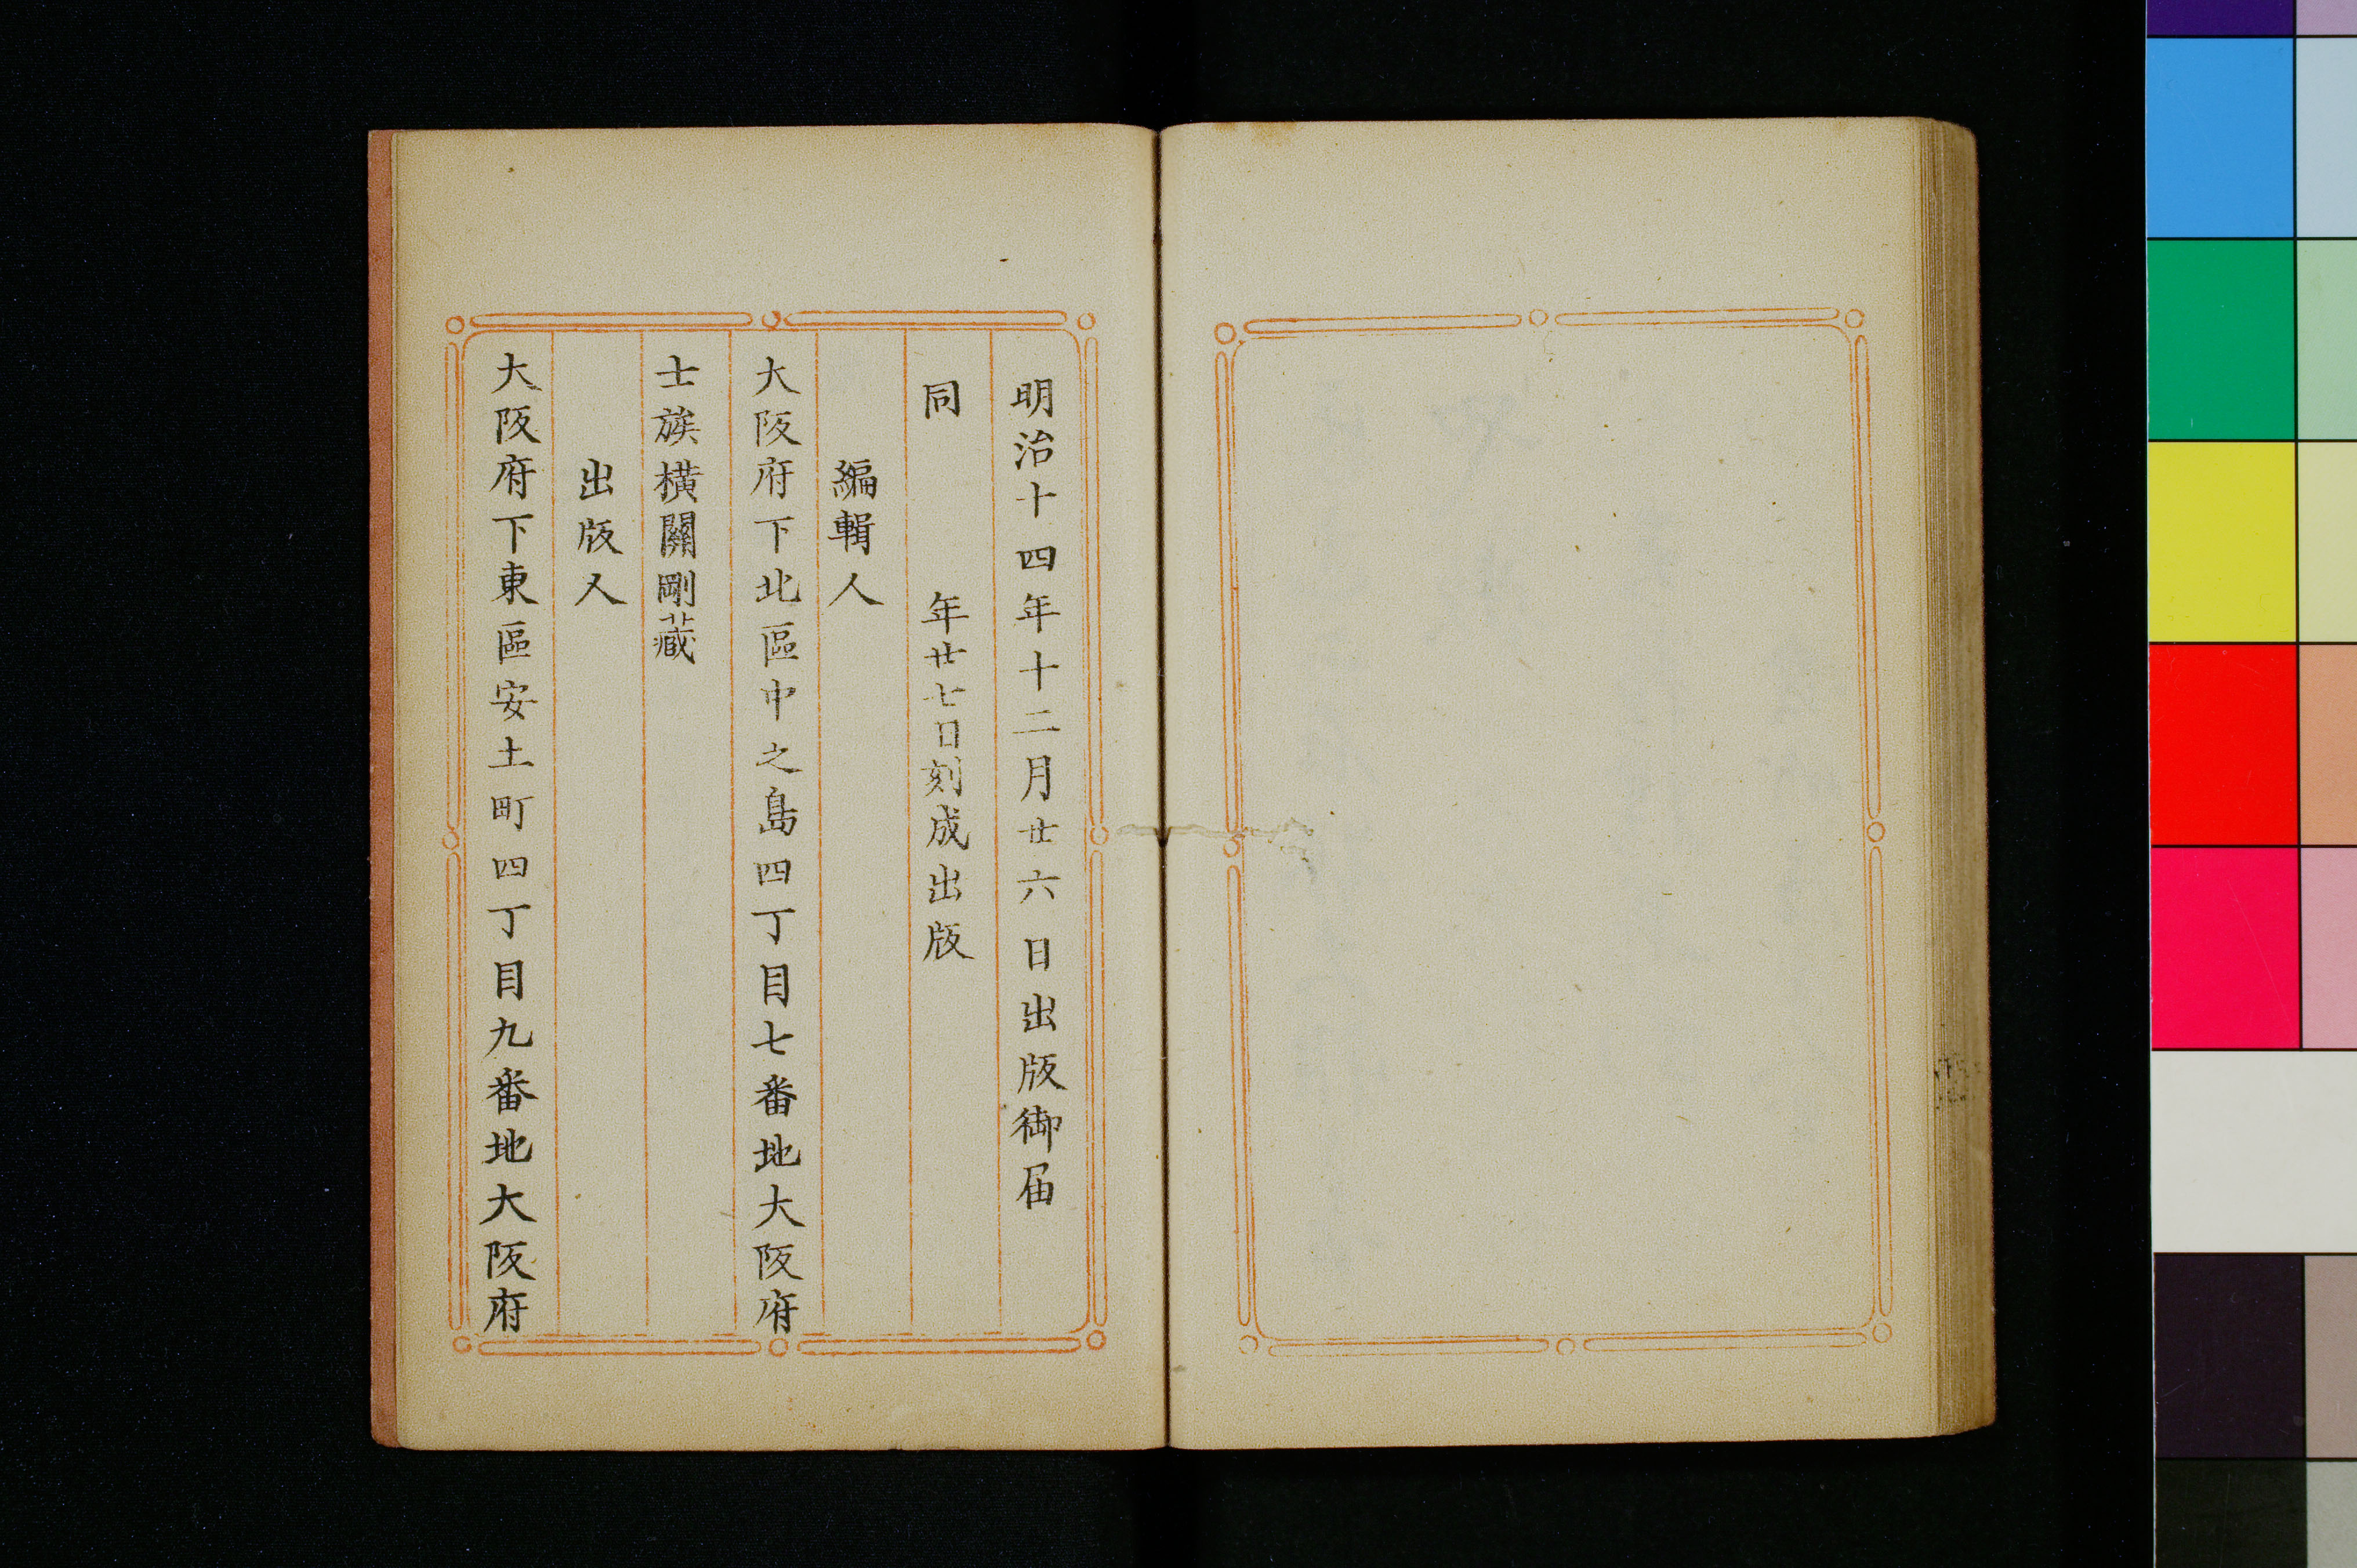 明治十四年十二月廿六日出版御届
同 年廿七日刻成出版
編輯人
大阪府下北區中之島四丁目七番地大阪府
士族橫關剛藏
出版人
大阪府下東區安土町四丁目九番地大阪府